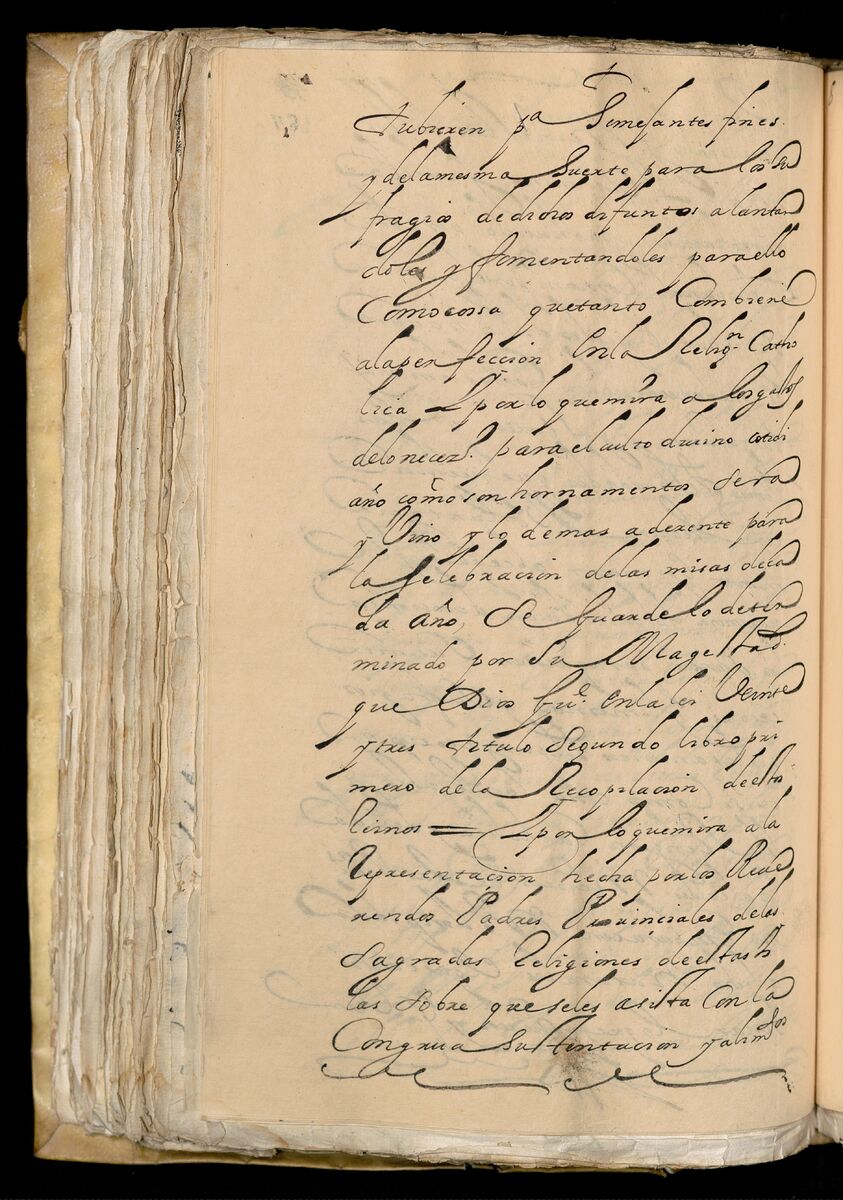 tubieren pa Simejantes fines
y delamesma Suerte para los Su
fragios de dichos difuntos alentan
doles y fomentandoles paraello
Comocossa quetanto Combiene
alaperfeccion En la Religon Catho
lica Y por lo que mira a los gastos
delo necezo. para el culto divino cotidi
ano como son hornamentos Sera
y Vino y lo demas aderente para
la Selebracion delas misas deca
da año, Se Guarde lo deter
minado por Su Magestad.
que Dios Gue. en la lei Veinte
y tres titulo Segundo libro pri
mero de la Recopilacion de estos
Reinos = Y por lo que mira a la
Representacion hecha por los Reve
rendos Padres Provinciales de las
Sagradas Religiones de estas Is
las Sobre queseles asista Con la
Congrua Sustentacion y alimtos